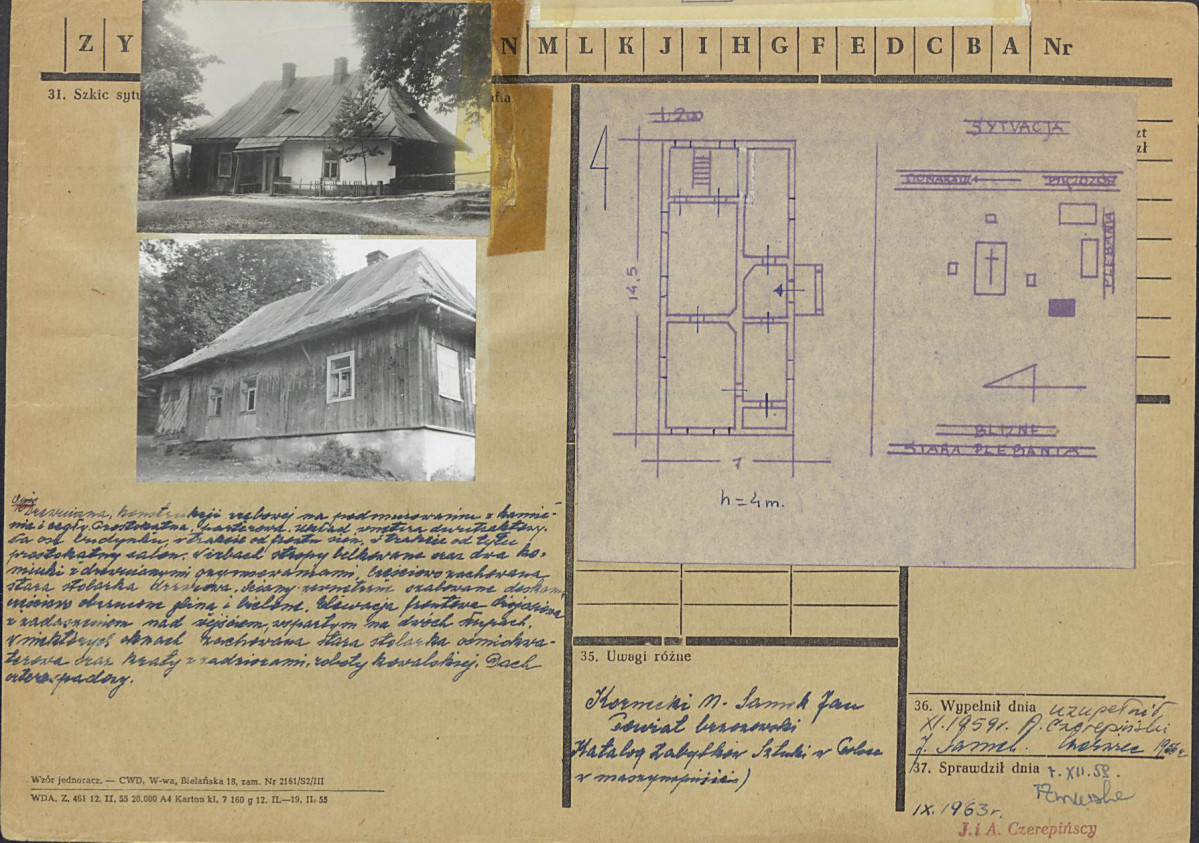 Z Y N M L K J I H G F E D C B A Nr
31. Szkic sytu
fia
zt
zł
1:200
SYTUACJA
14,5
7
h = 4 m.
PLEBANIA
BLIZNE
STARA PLEBANIA
Opis
Drewniana, konstrukcji zrębowej na podmurowaniu z kamie-
nia i cegły. Prostokątna, parterowa. Układ wnętrza dwutraktowy.
Na osi budynku, w trakcie od frontu sień, w trakcie od tyłu
prostokątny salon. W izbach stropy belkowane oraz dwa ko-
minki z drewnianymi gzymsowaniami. Częściowo zachowana
stara stolarka drzwiowa. Ściany zewnętrzne oszalowane deskami,
częściowo obrzucone gliną i bielone. Elewacja frontowa
z zadaszeniem nad wejściem, wspartym na dwóch słupach.
W niektórych oknach zachowana stara stolarka ośmiokwa-
terowa oraz kraty z zadziorami, roboty kowalskiej. Dach
czterospadowy.
35. Uwagi różne
Kornecki M. Samek Jan
Powiat brzozowski
Katalog Zabytków Sztuki w Polsce
w maszynopisie)
36. Wypełnił dnia uzupełnił
XI. 1959r. A. Czerepiński
J. Samek
37. Sprawdził dnia 7. XII. 59.
IX. 1963 r.
J. i A. Czerepińscy
Wzór jednoracz. — CWD, W-wa, Bielańska 18, zam. Nr 2161/S2/III
WDA. Z. 461 12. II. 55 20.000 A4 Karton kl. 7 160 g 12. II.—19. II. 55